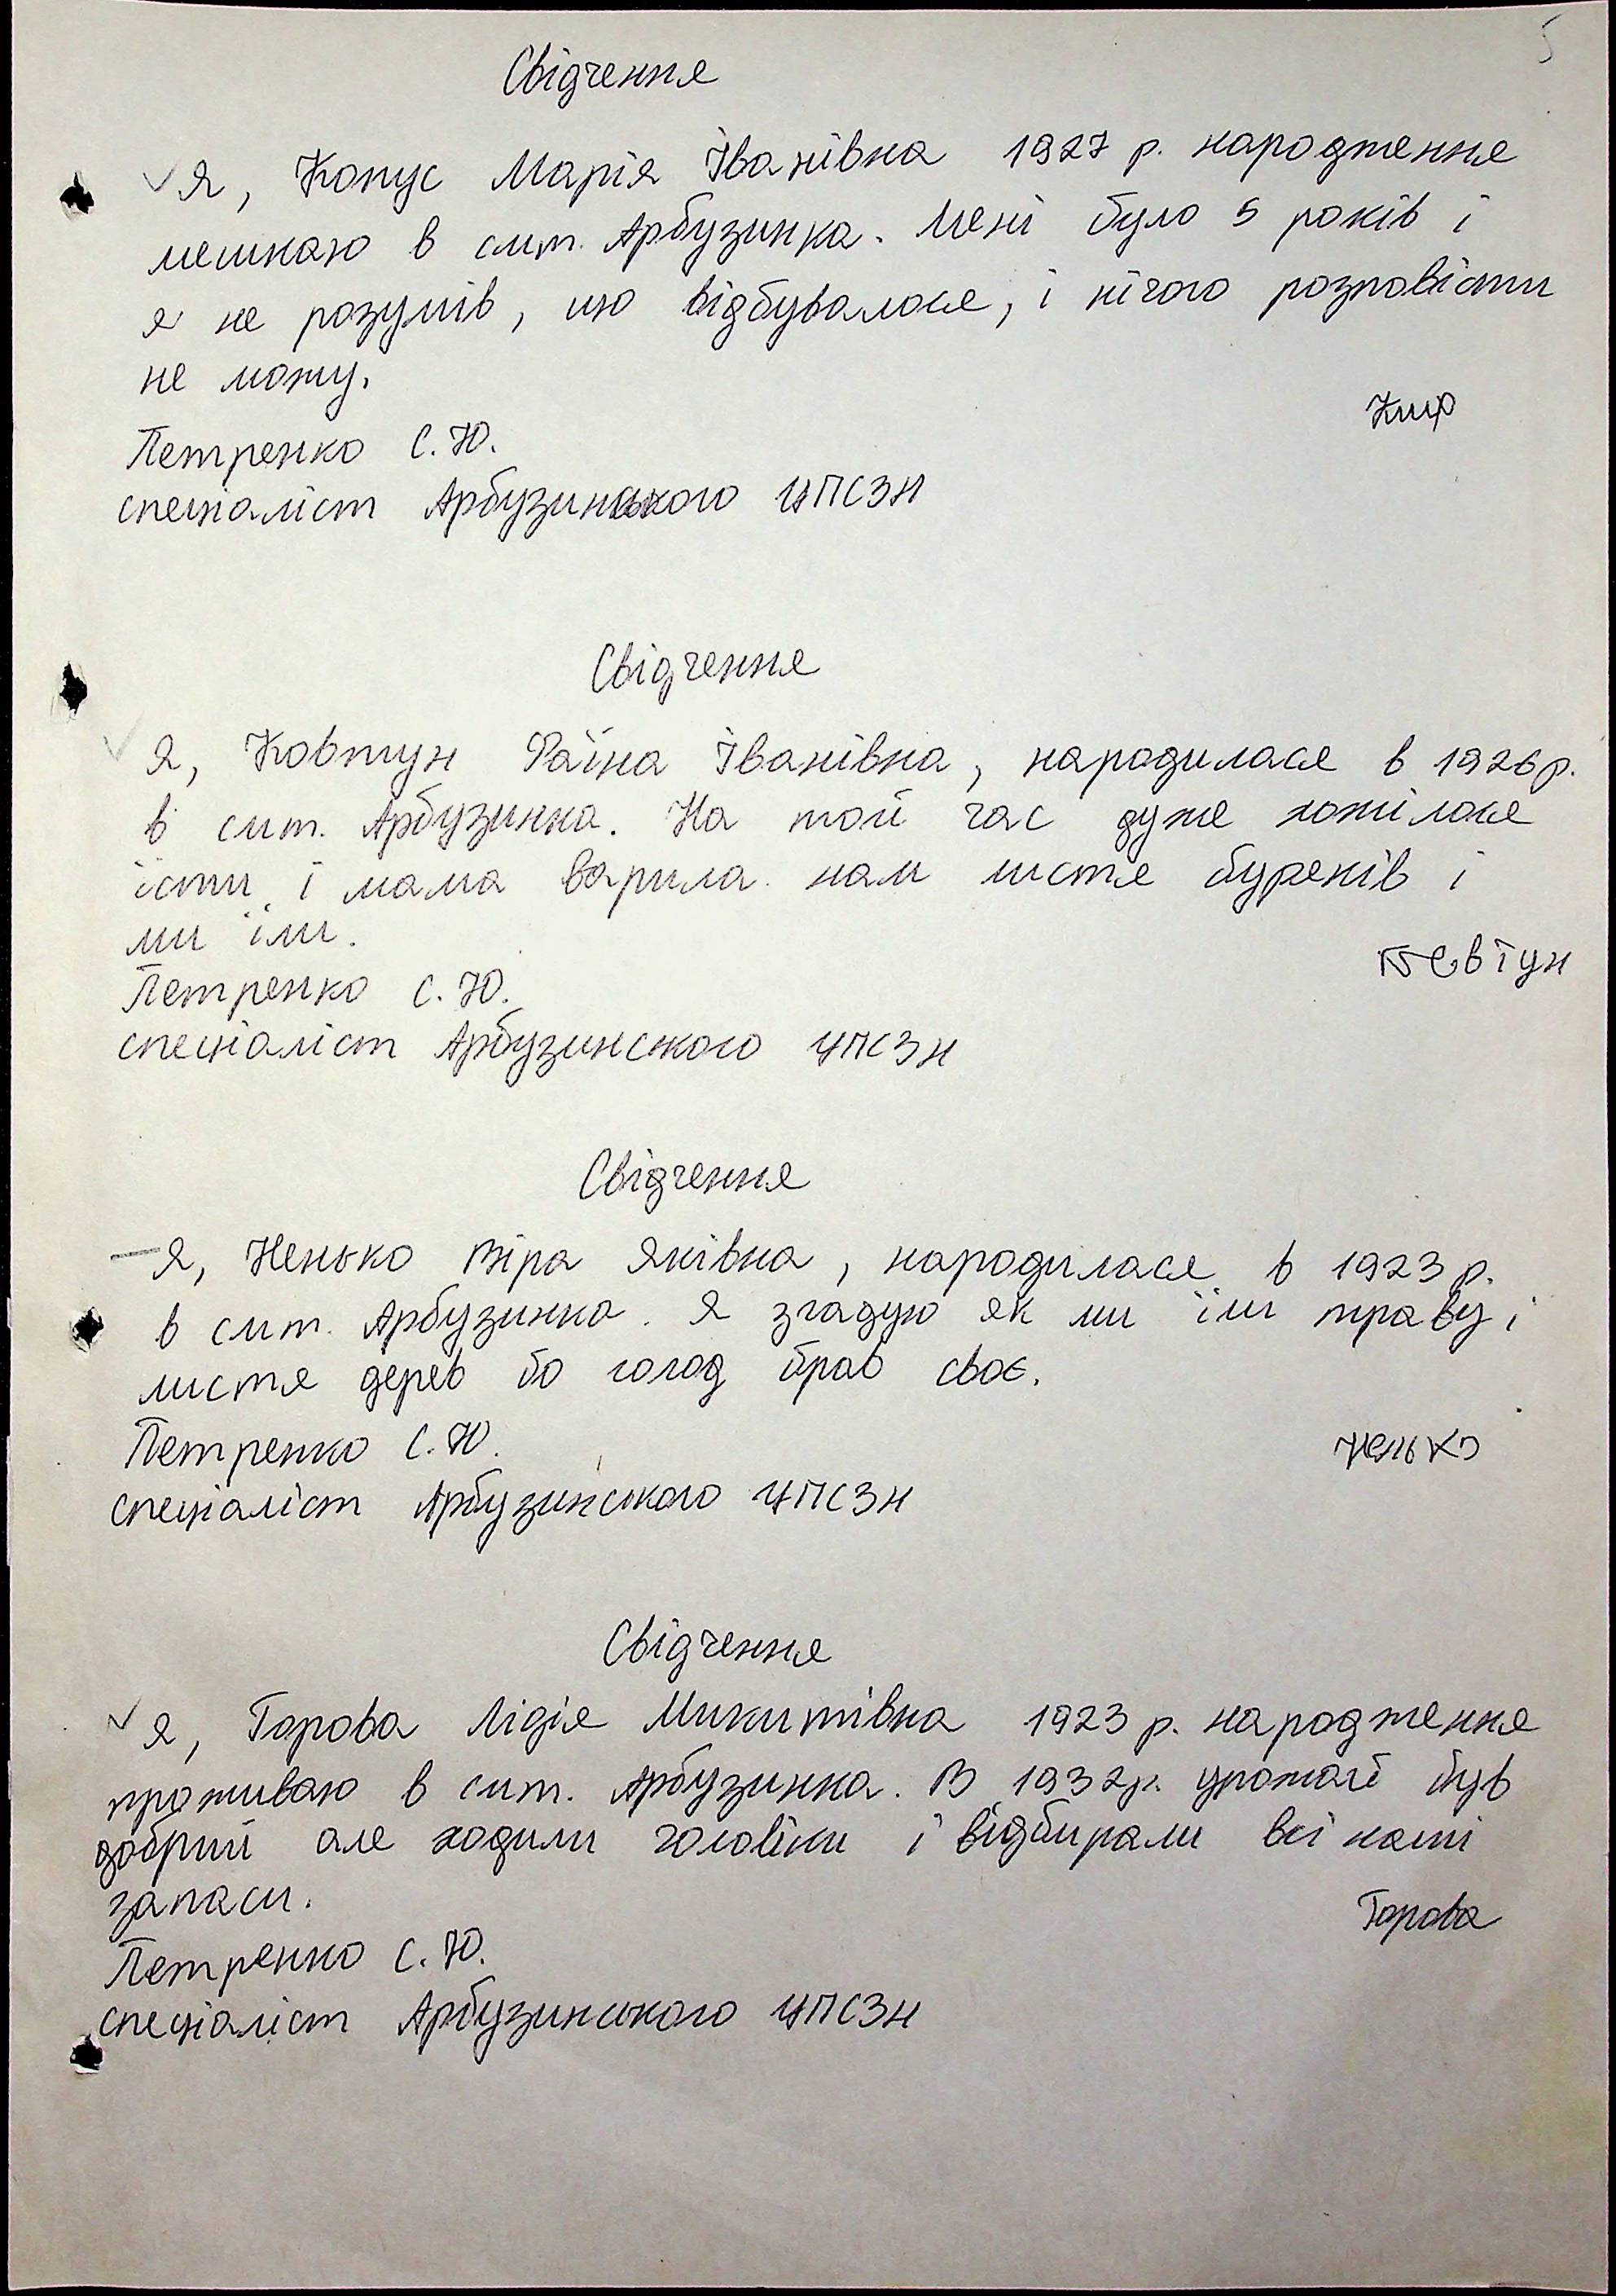 5
Свідчення
Я, Копус Марія Іванівна 1927 р. народження
мешкаю в смт. Арбузинка. Мені було 5 років і
я не розумів, що відбувалося, і нічого розповісти
не можу.
Петренко С.Ю.
спеціаліст Арбузинського ЦПСЗН
Свідчення
Я, Ковтун Раїна Іванівна, народилася в 1926 р.
в смт. Арбузинка. На той час дуже хотілося
їсти і мама варила нам листя буряків і
ми їли.
Ковтун
Петренко С.Ю.
спеціаліст Арбузинського ЦПСЗН
Свідчення
Я, Ненько Віра Яківна, народилася в 1923 р.
в смт. Арбузинка. Я згадую як ми їли траву і
листя дерев бо голод брав своє.
Петренко С.Ю.
Ненько
спеціаліст Арбузинського ЦПСЗН
Свідчення
Я, Горова Лідія Микитівна 1923 р. народження
проживаю в смт. Арбузинка. В 1932р. урожай був
добрий але ходили чоловіки і відбирали всі наші
запаси.
Горова
Петренко С.Ю.
спеціаліст Арбузинського ЦПСЗН